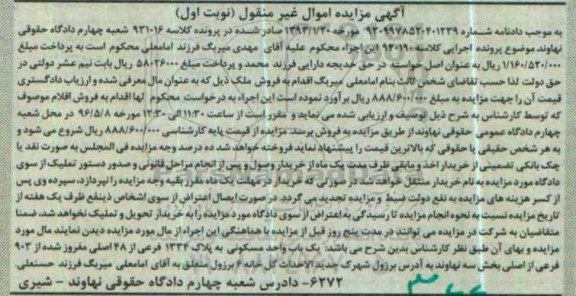 آگهی مزایده اموال غیر منقول (نوبت اول)
به موجب دادنامه شماره ۹۳۰۹۹۷۸۵۲۰۴۰۱۲۳۹ مورخه ۱۳۹۳/۱/۲۰ صادر شده در پرونده کلاسه ۹۳۱۰۱۶ شعبه چهارم دادگاه حقوقی
نهاوند موضوع پرونده اجرایی کلاسه ۹۴۰۱۹۰ این اجراء محکوم علیه آقای مهدی میربگ فرزند امامعلی محکوم است به پرداخت مبلغ
۱/۱۶۰/۵۲۰/۰۰۰ ریال به عنوان اصل خواسته در حق خدیجه دارایی فرزند محمد و پرداخت مبلغ ۵۸۰۲۶۰۰۰ ریال بابت نیم عشر دولتی در
حق دولت لذا حسب تقاضای شخص ثالث بنام امامعلی میربگ اقدام به فروش ملک ذیل که به عنوان مال معرفی شده و ارزیاب دادگستری
قیمت آن را جهت مزایده به مبلغ ۸۸۸/۶۰۰/۰۰۰ ریال برآورد نموده است این اجراء به درخواست محکوم لها اقدام به فروش اقلام موصوف
که توسط کارشناس به شرح ذیل توصیف و ارزیابی شده می نماید و مقرر است از ساعت ۱۱:۳۰ الی ۱۲:۳۰ مورخه ۹۶/۵/۸ در محل شعبه
چهارم دادگاه عمومی حقوقی نهاوند از طریق مزایده به فروش برسد مزایده از قیمت پایه کارشناسی ۸۸۸/۶۰۰/۰۰۰ ریال شروع می شود و
به هر شخص حقیقی یا حقوقی که بالاترین قیمت را پیشنهاد نماید فروخته خواهد شد ده درصد وجه مزایده فی المجلس به صورت نقد یا
چک بانکی تضمینی از خریدار اخذ و مابقی ظرف مدت یک ماه از خریدار وصول و پس از انجام مراحل قانونی و صدور دستور تملیک از سوی
دادگاه مورد مزایده به نام خریدار منتقل خواهد شد در صورتی که خریدار در مهلت یک ماه مقرر بقیه وجه مزایده را نپردازد، سپرده وی پس
از کسر هزینه های مزایده به نفع دولت ضبط و مزایده تجدید می گردد در صورت ایصال اعتراض از سوی اشخاص ذینفع ظرف یک هفته از
تاریخ مزایده نسبت به نحوه انجام مزایده تا رسیدگی به اعتراض از سوی دادگاه مورد مزایده را به خریدار تحویل و تملیک نخواهد شد، ضمنا
متقاضیان به شرکت در مزایده می توانند در مدت پنج روز قبل از مزایده با هماهنگی این اجراء از مال مورد مزایده دیدن نمایند مال مورد
مزایده و بهای آن طبق نظر کارشناس بدین شرح می باشد: یک باب واحد مسکونی به پلاک ۱۳۳۴ فرعی از ۴۸ اصلی مفروز شده از ۹۰۳
فرعی از اصلی بخش سه نهاوند به آدرس برزول شهرک جدید الاحداث گل خانه ۶ برزول متعلق به آقای امامعلی میربگ فرزند حسنعلی.
۶۲۷۲- دادرس شعبه چهارم دادگاه حقوقی نهاوند - شیری